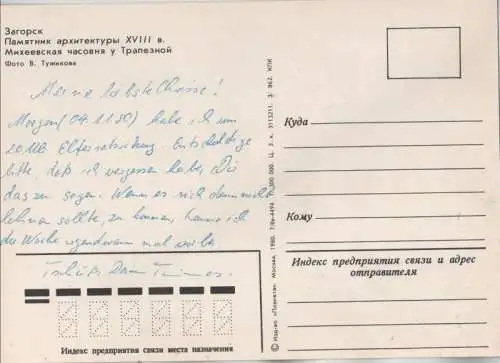 Загорск
Памятник архитектуры XVIII в.
Михеевская часовня у Трапезной
Фото В. Тужикова
Meine liebste Christine!
Morgen (04.11.80) habe ich um
20 Uhr Elternratssitzung. Entschuldige
bitte, daß ich vergessen habe, Dir
das zu sagen. Wenn es sich dann nicht
lohnen sollte, zu kommen, komme ich
die Woche irgendwann mal vorbei
Tschüß Dein
Индекс предприятия связи места назначения
© Изд-во «Планета». Москва, 1980. 000. Ц. 3 к. 3113211. З/ 862. КПК
Куда
Кому
Индекс предприятия связи и адрес
отправителя